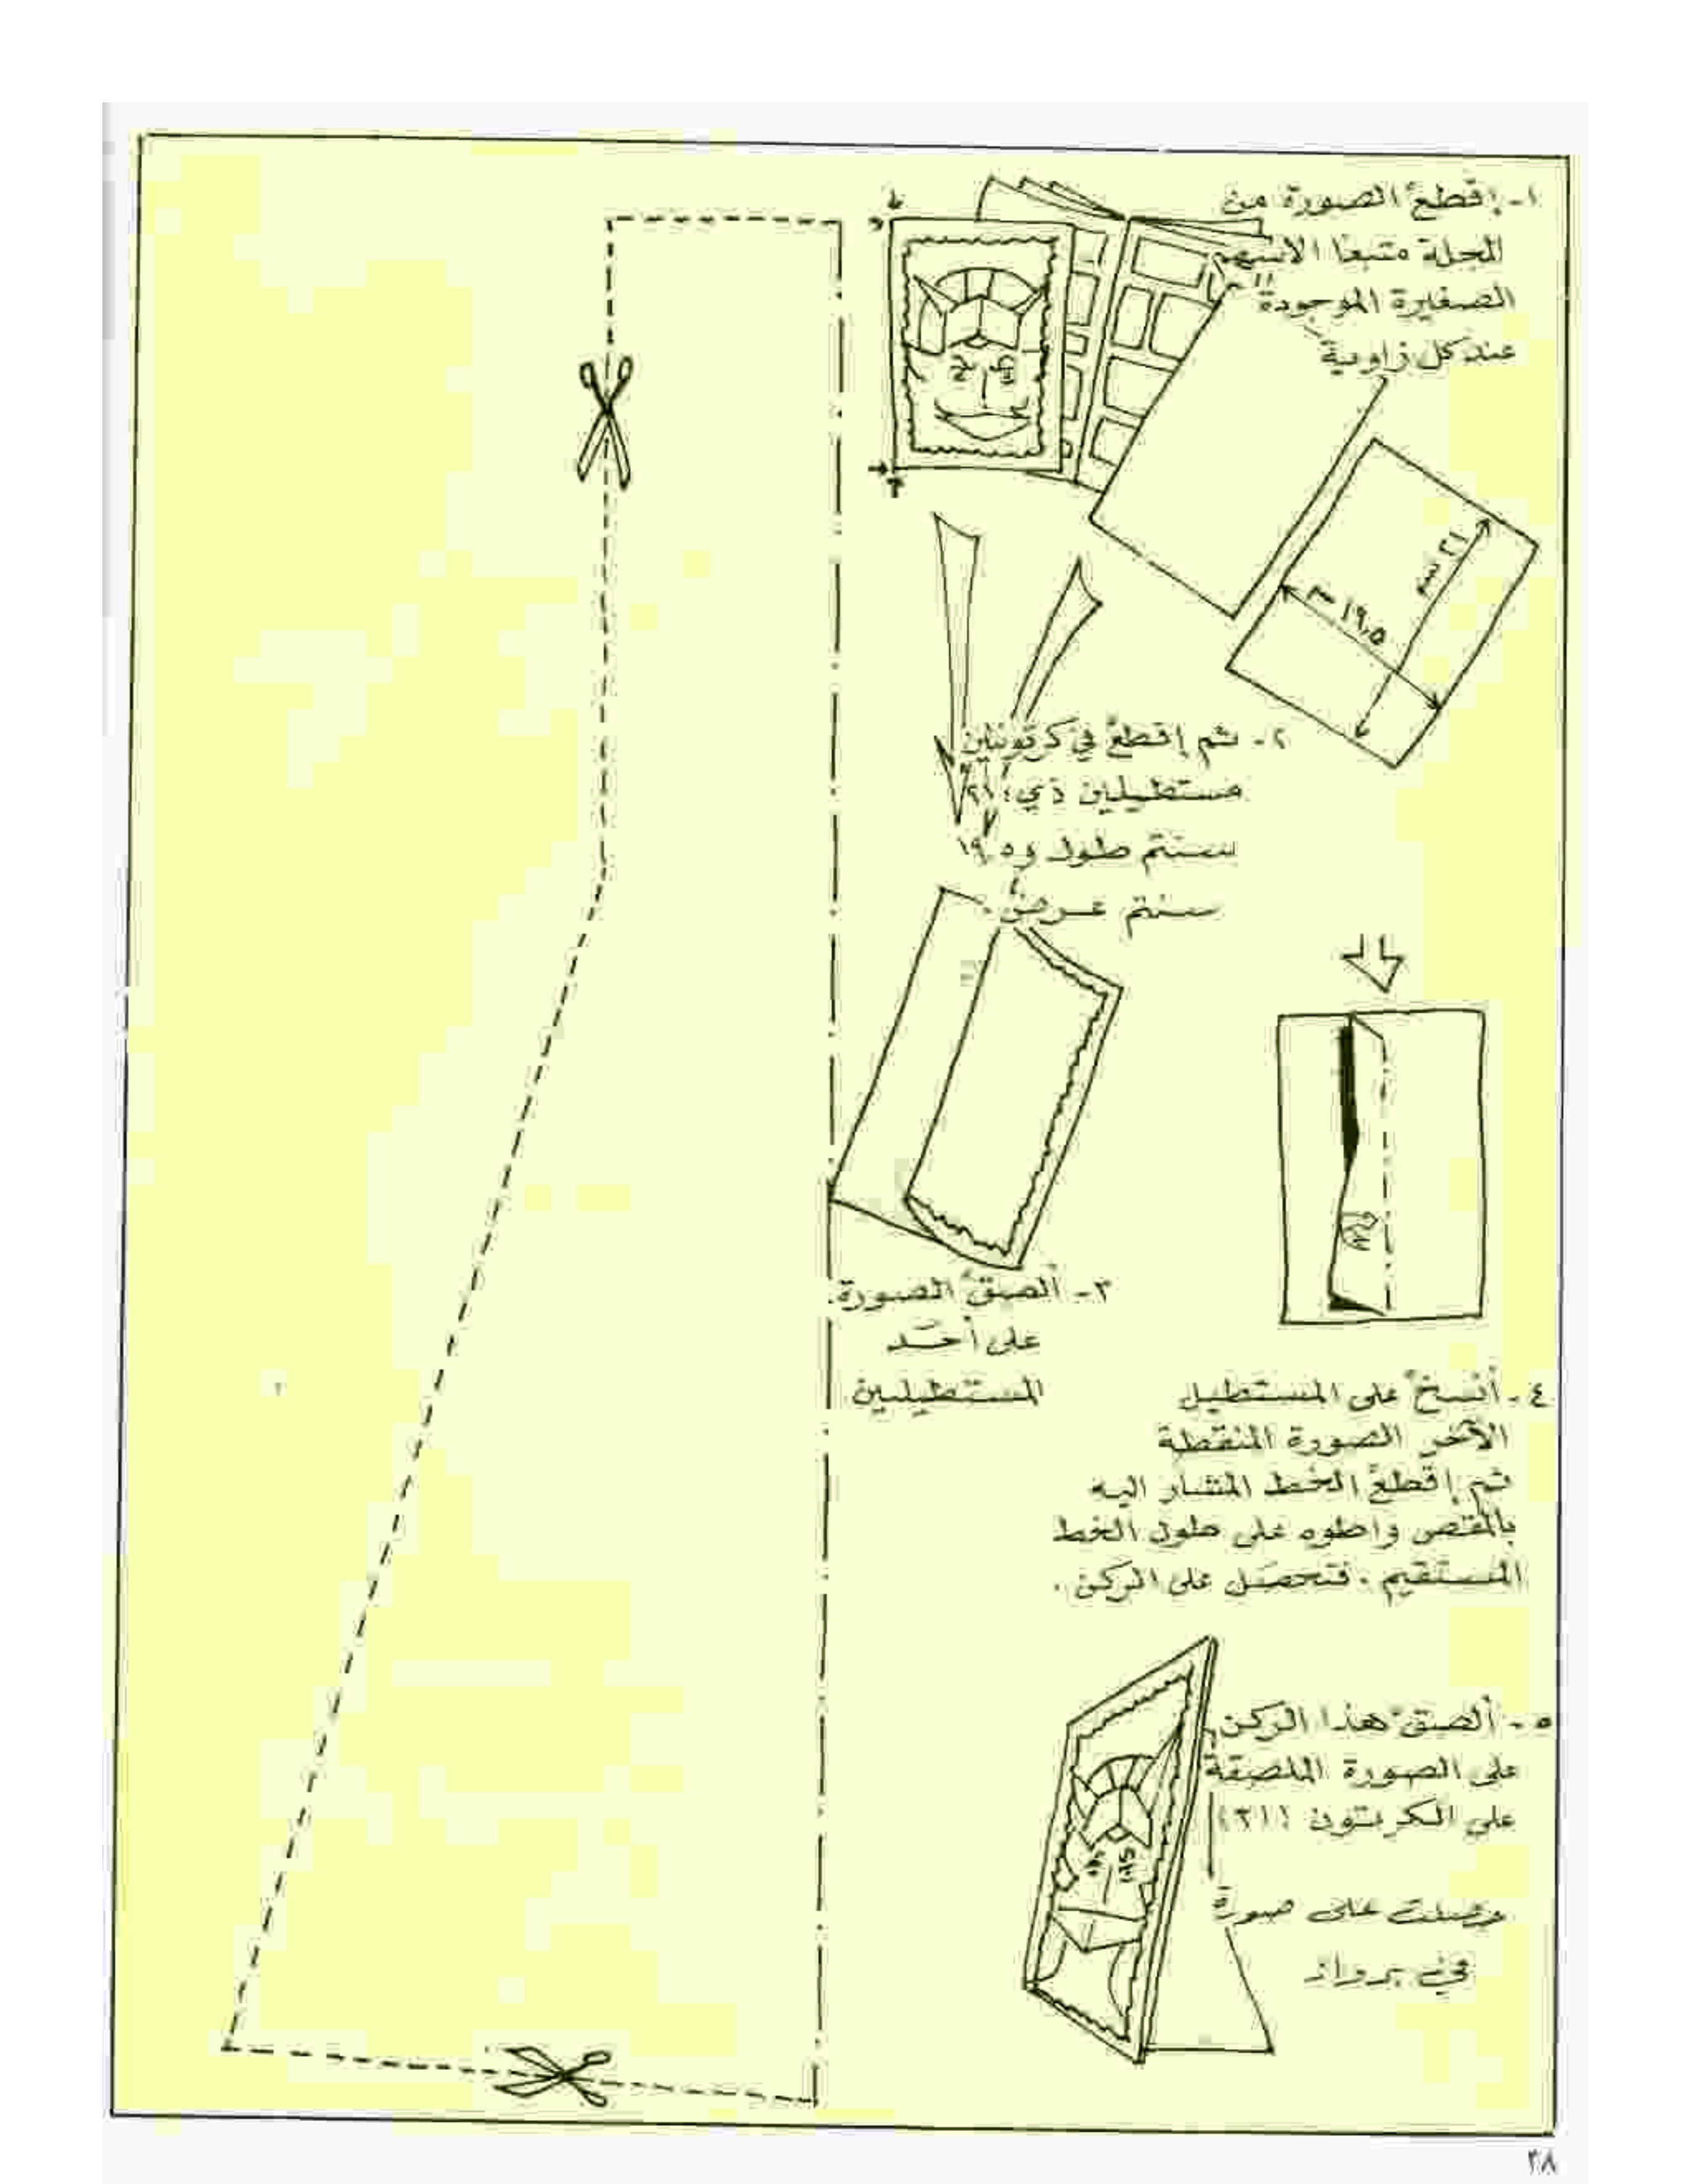 ١- إقطعْ الصورة من
المجلة متبعا الاسهم
الصغيرة الموجودة
عند كل زاوية
٢١ سم
١٩,٥ سم
٢- ثم إقطعْ في كرتونتين
مستطيلين ذي ٢١
سنتم طول و ١٩,٥
سنتم عرض.
٣- ألصقْ الصورة
على أحَد
المستطيلين
٤- أنسخْ على المستطيل
الآخر الصورة المنقطة
ثم إقطعْ الخط المشار اليه
بالمقص واطوه على طول الخط
المستقيم. فتحصَل على الركن.
٥- ألصقْ هذا الركن
على الصورة الملصقة
على الكرتون
وصلت على صورة
في برواز
٣٨